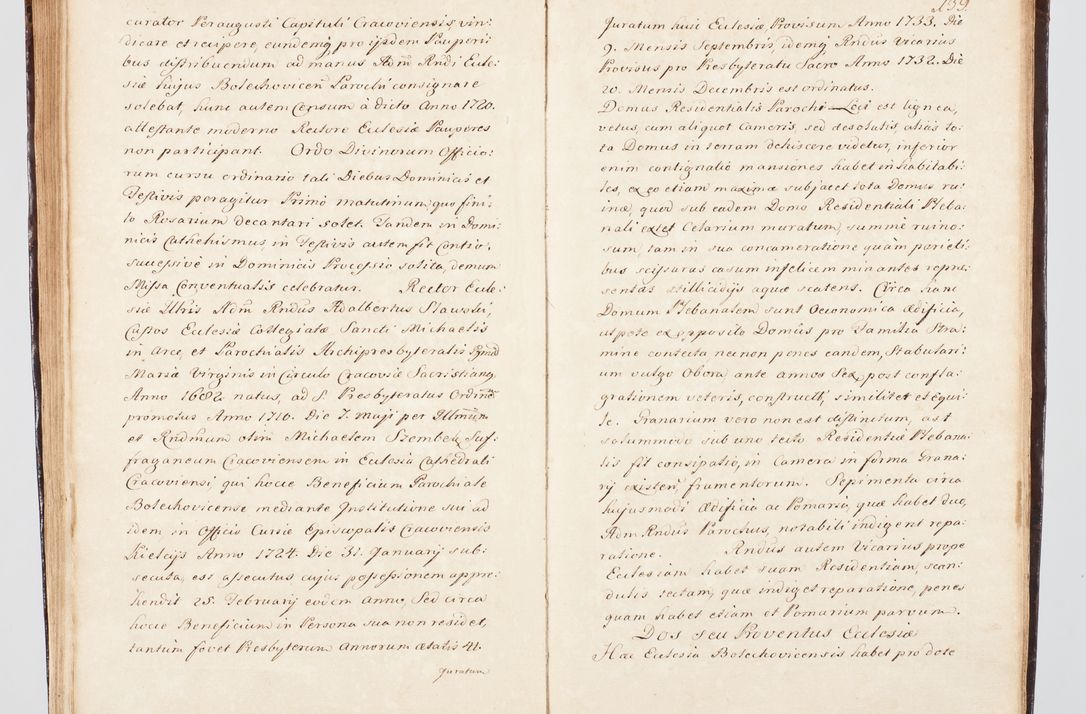 curator Peraugusti Capituli Cracoviensis vin:
dicare et recipere, eundemq́ pro ijsdem Pauperi:
bus distribuendum ad manus Adm̃ Rndi Eccle:
siæ hujus Bolechovicen̄ Parochi consignare
solebat, hunc autem Censum à dicto Anno 1720.
attestante moderno Rectore Ecclesiæ Pauperes
non participant. Ordo Divinorum Officio:
rum cursu ordinario tali Diebus Dominicis et
Festivis peragitur Primò matutinum, quo fini:
to Rosarium decantari solet. Tandem in Domi:
nicis Cathehismus, in Festivis autem fit Contio.
successivè in Dominicis Processio solita, demum
Missa Conventualis celebratur. Rector Eccle:
siæ Illris Adm̃ Rndus Adalbertus Slawski,
Custos Ecclesiæ Collegiatæ Sancti Michaelis
in Arce, et Parochialis Archipresbyteralis
Mariæ Virginis in Circulo Cracoviæ Sacristianq
Anno 1682. natus, ad S. Presbyteratus Ordinem
promotus Anno 1710. Die 7. Maji per Illmum
et Rndmum olim Michaelem Szembek Suf:
fraganeum Cracoviensem in Ecclesia Cathedrali
Cracoviensi, qui hocce Beneficium Parochiale
Bolechovicense mediante Institutione sui ad
idem, in Officio Curiæ Episcopalis Cracoviensis
Kielcijs Anno 1724. Die 31. Januarij sub:
secuta, est assecutus cujus possessionem appre:
hendit 25. Februarij eodem Anno, Sed circa
hocce Beneficium in Persona sua non residet,
tantum fovet Presbyterum Annorum ætatis 41.
Juratum
139
Juratum huic Ecclesiæ, Provisum Anno 1733. Die
9. Mensis Septembris, idemq́ Rndus Vicarius
Provisus pro Presbyteratu Sacro Anno 1732. Die
20. Mensis Decembris est ordinatus.
Domus Residentialis Parochi Loci est lignea,
vetus, cum aliquot Cameris, sed desolatis, aliàs to:
ta Domus in terram dehiscere videtur, inferior
enim contignatio mansiones habet inhabitabi:
les, ex eo etiam maximæ subjacet tota Domus ru:
inæ, quod sub eadem Domo Residentiali Pleba:
nali extet Celarium muratum, summè ruino:
sum, tam in sua concameratione quàm parieti:
bus scissuras casum infelicem minantes repræ:
sentâs stillicidijs aquæ scatens. Circa hanc
Domum Plebanalem sunt Oeconomica Ædificia,
utpote ex opposito Domûs pro Familia Stra:
mine contecta, nec non penes eandem, Stabulari:
um vulgo Obora, ante annos Sex, post confla:
grationem veteris, constructū, similiter et Equi:
le. Granarium vero non est distinctum, ast
solummodo sub uno tecto Residentiæ Plebana:
lis fit consipatio, in Camera in forma Grana:
rij existen̄ frumentorum. Sepimenta circa
hujusmodi Ædificia ac Pomaria, quæ habet duo,
Adm Rndus Parochus, notabili indigent repa:
ratione. Rndus autem Vicarius prope
Ecclesiam habet suam Residentiam, scan:
dulis tectam, quæ indiget reparatione, penes
quam habet etiam et Pomarium parvum.
Dos seu Proventus Ecclesiæ
Hæc Ecclesia Bolechovicensis habet pro dote